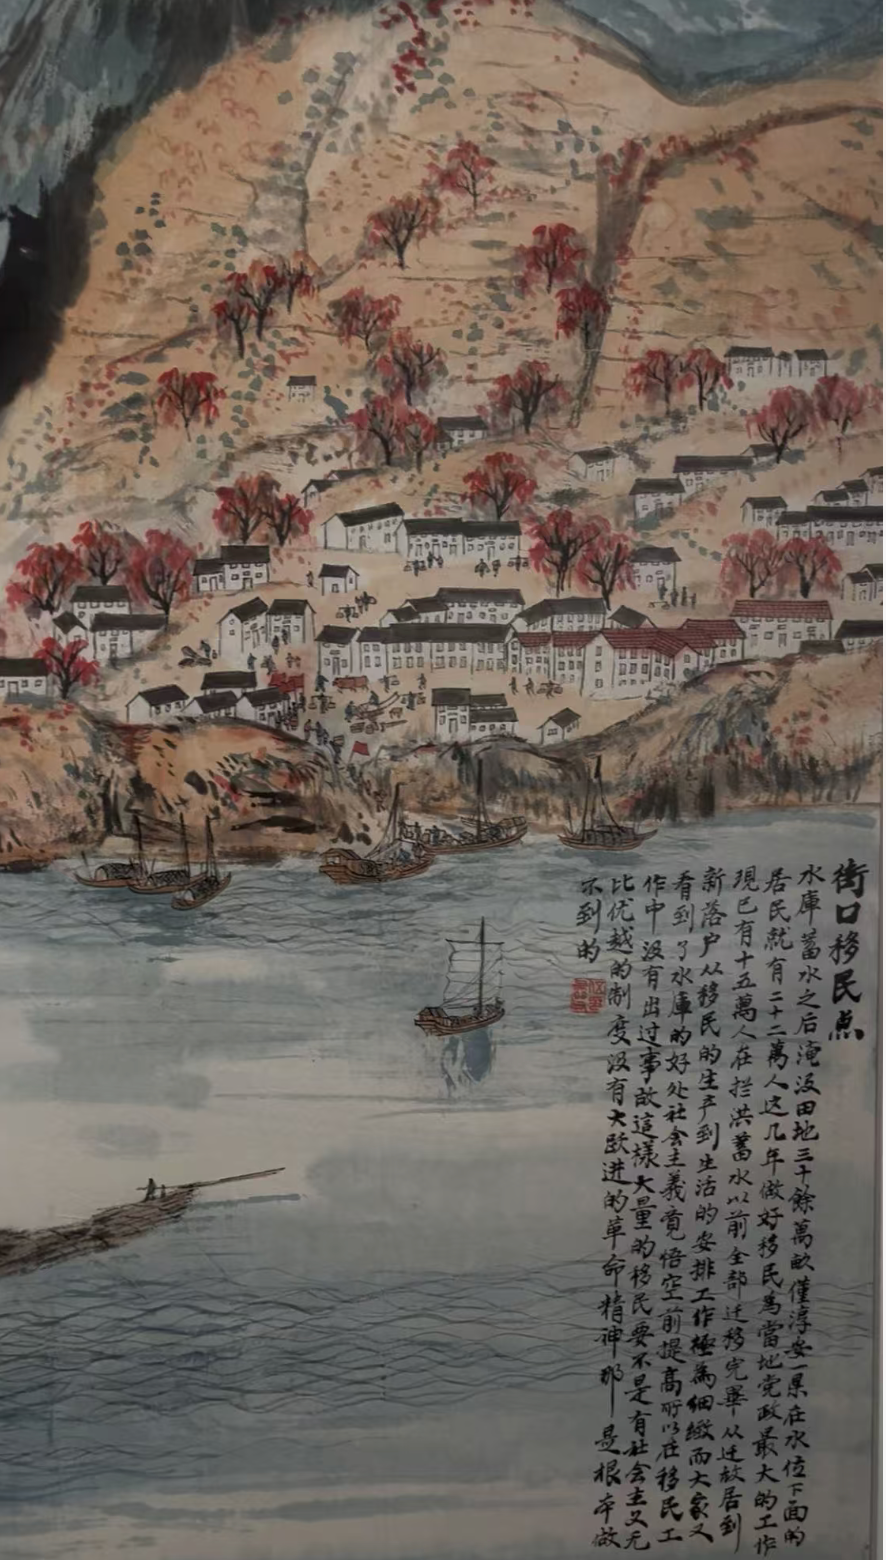 街口移民点
水庫蓄水之后淹没田地三十餘萬畝僅淳安一県在水位下面的
居民就有二十二萬人这几年做好移民為當地党政最大的工作
現已有十五萬人在拦洪蓄水以前全部迁移完畢从迁故居到
新落户从移民的生产到生活的安排工作極為細緻而大家又
看到了水庫的好处社会主義覚悟空前提高所以在移民工
作中没有出过事故這樣大量的移民要不是有社会主义无
比优越的制度没有大跃进的革命精神那是根本做
不到的